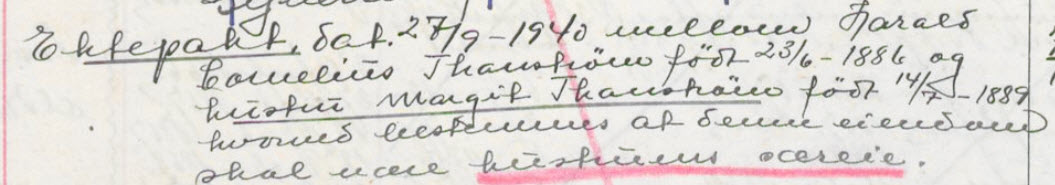 Ektepakt, dat. 27/9-1940 mellom Harald
Cornelius Thanström född 23/6-1886 og
hustru Margit Thanström född 14/7-1889
hvorved bestemmes at denne eiendom
skal være hustruens særeie.